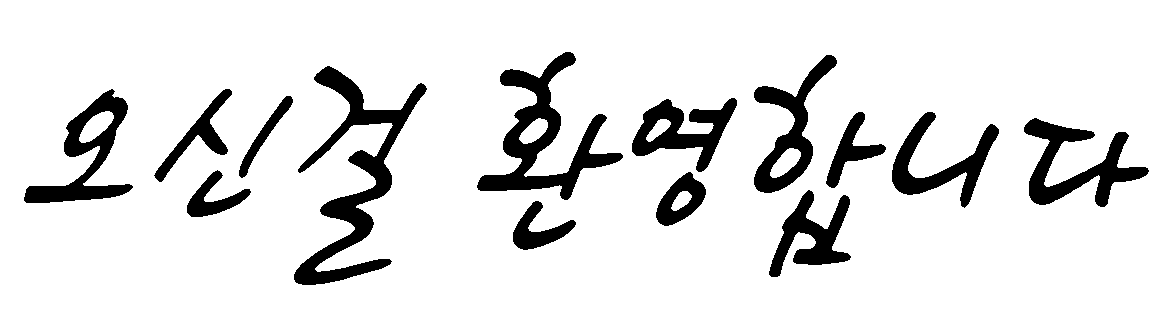 오신걸 환영합니다